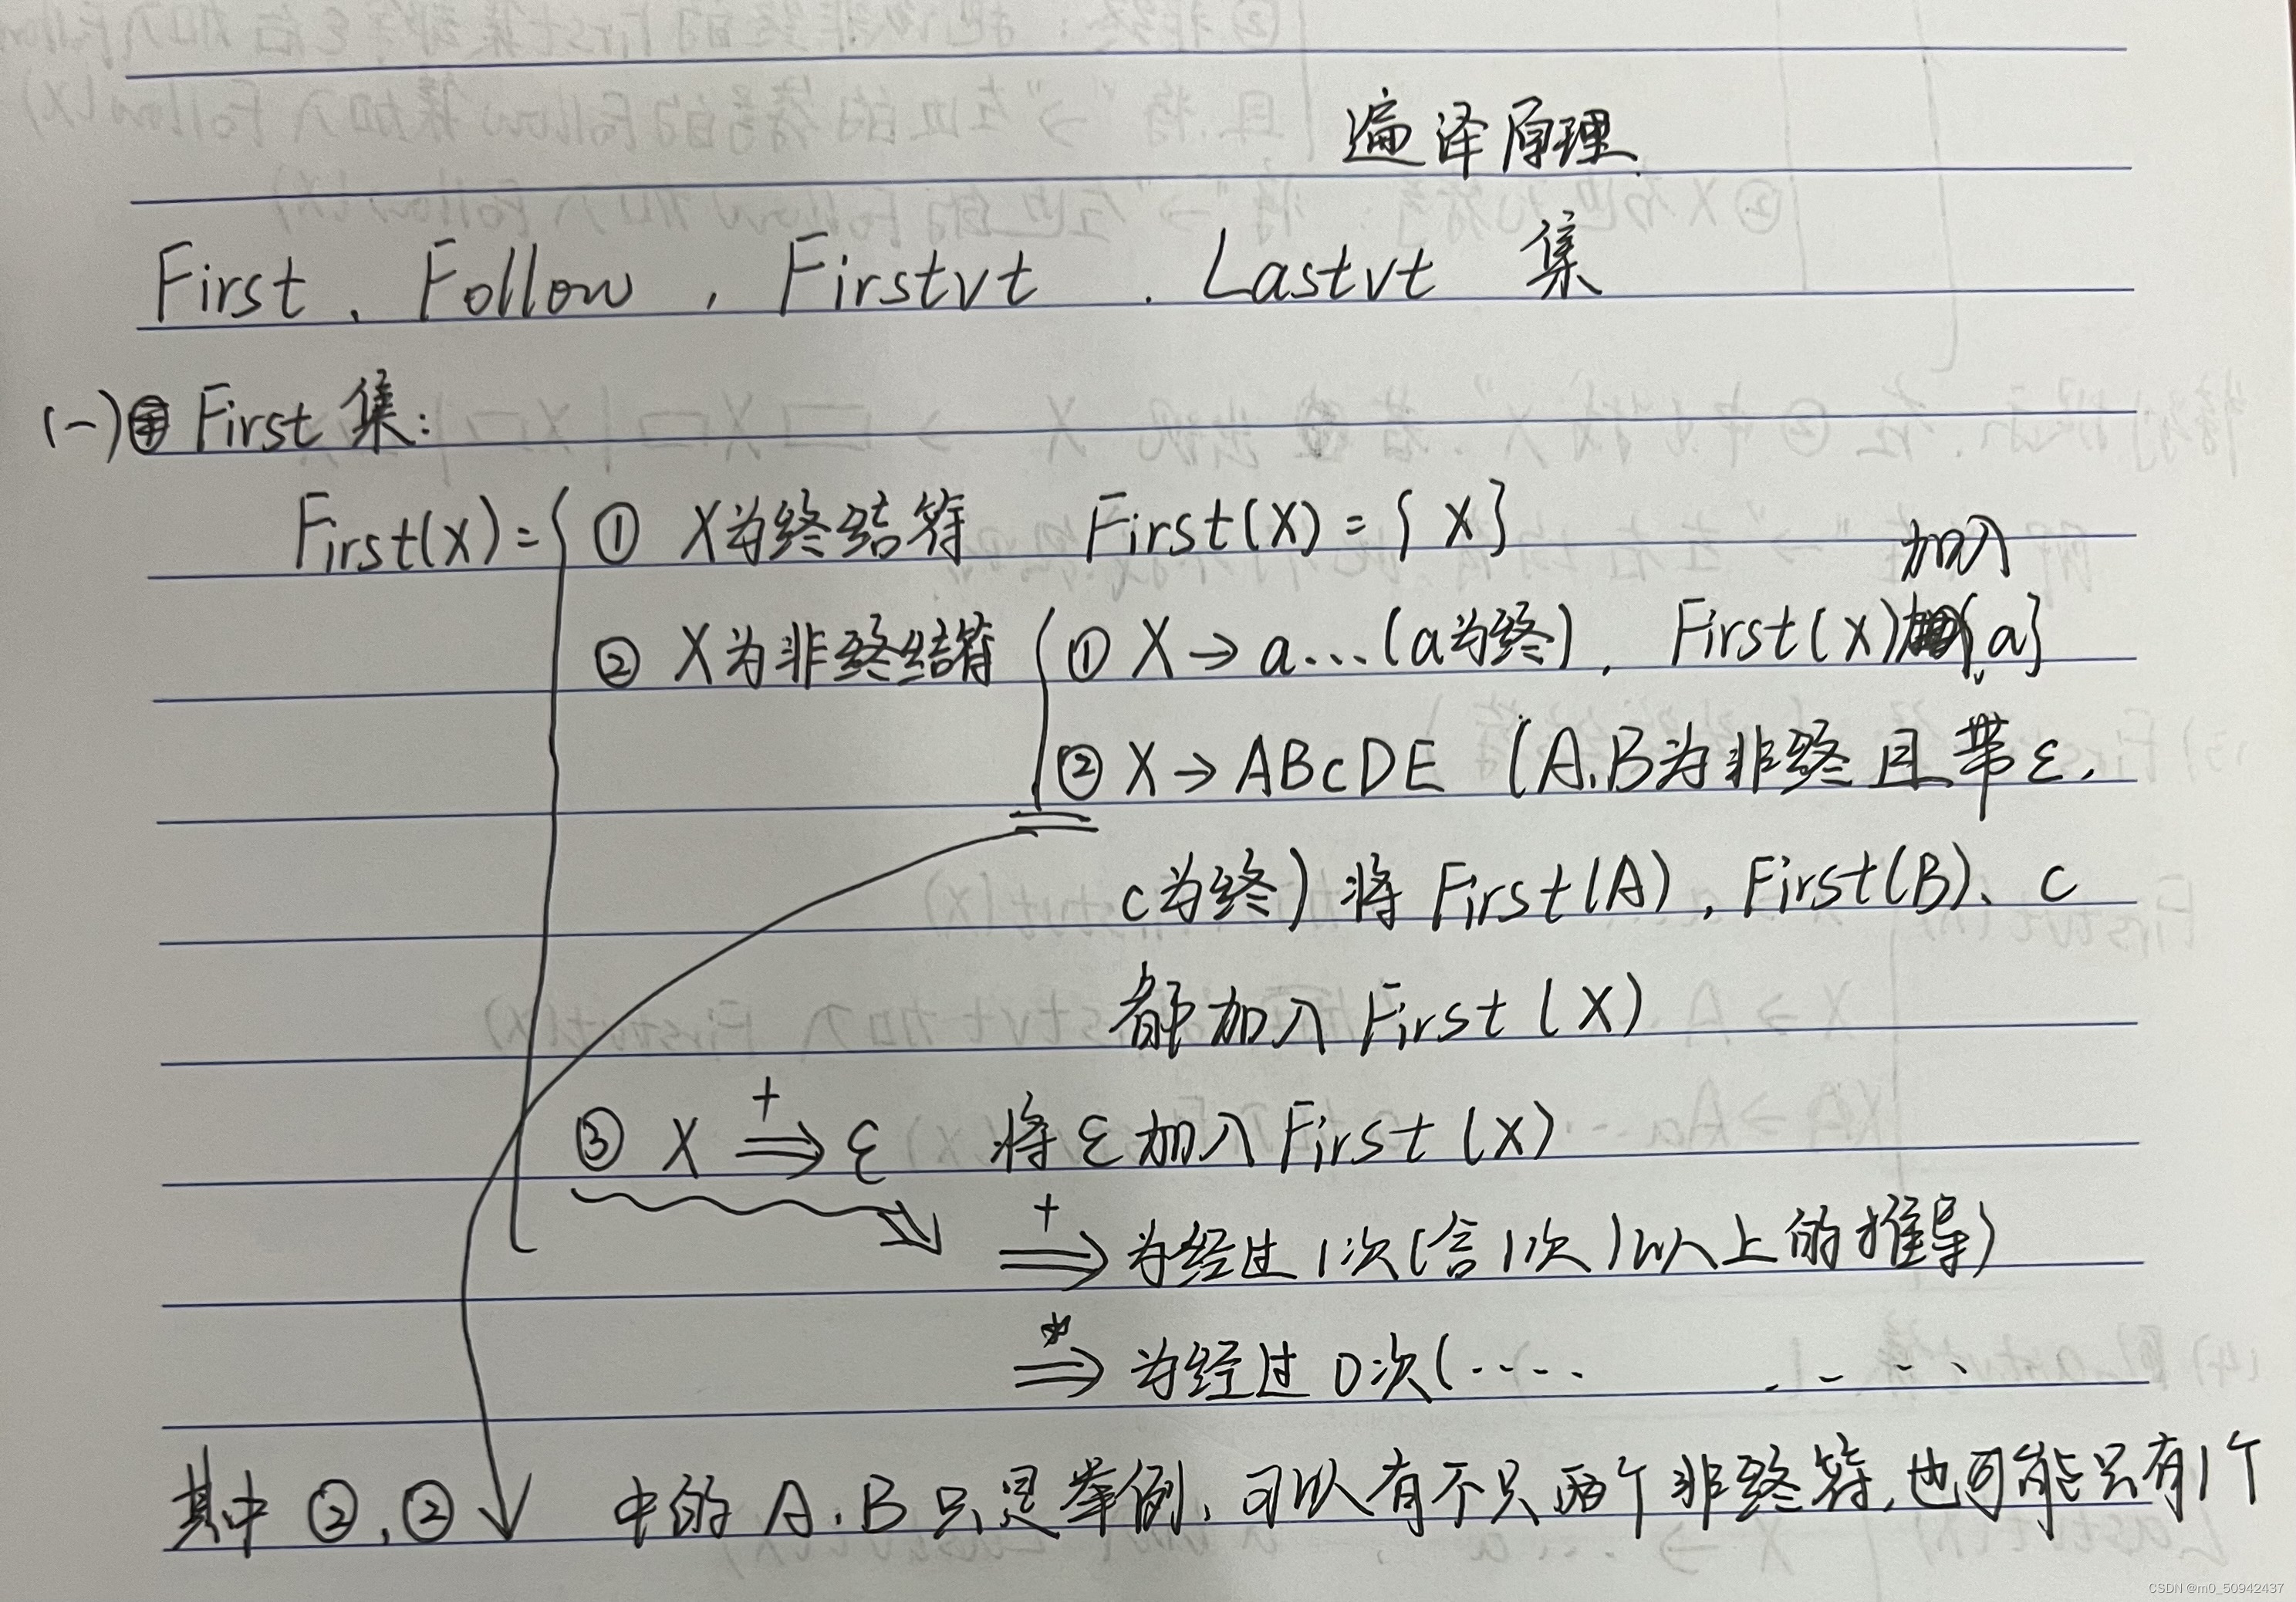 遍译原理
First、Follow，Firstvt、Lastvt 集
(一) First 集：
First(X)= ① X为终结符 First(X)={X}
加入
② X为非终结符 ① X→a…(a为终)，First(X) {a}
② X→ABcDE (A、B为非终且带ε，
c为终) 将 First(A)，First(B)、c
都加入 First(X)
③ X ⇒ ε 将ε加入First(X)
+
+
⇒ 为经过1次(含1次)以上的推导)
*
⇒ 为经过0次(…… … …
其中②、② 中的A、B只是举例，可以有不只两个非终符，也可能只有1个
CSDN @m0_50942437